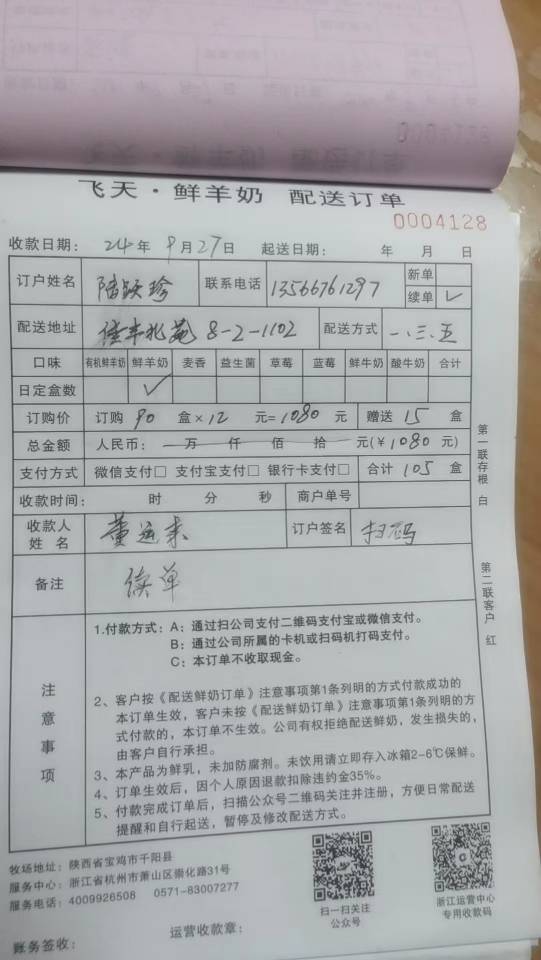 飞天·鲜羊奶 配送订单
0004128
收款日期： 24年 9月27日 起送日期： 年 月 日
订户姓名 陆跃珍 联系电话 13566761297 新单
续单 ✓
配送地址 佳丰北苑 8-2-1102 配送方式 一、三、五
口味 有机鲜羊奶 鲜羊奶 麦香 益生菌 草莓 蓝莓 鲜牛奶 酸牛奶 合计
日定盒数 ✓
订购价 订购 90 盒×12 元=1080 元 赠送 15 盒
总金额 人民币： 万 仟 佰 拾 元(￥1080元)
支付方式 微信支付□ 支付宝支付□ 银行卡支付□ 合计 105 盒
收款时间： 时 分 秒 商户单号
收款人
姓 名 董运来 订户签名 扫码
备注 续单
注意事项
1.付款方式：A；通过扫公司支付二维码支付宝或微信支付。
B：通过公司所属的卡机或扫码机打码支付。
C：本订单不收取现金。
2、客户按《配送鲜奶订单》注意事项第1条列明的方式付款成功的
本订单生效，客户未按《配送鲜奶订单》注意事项第1条列明的方
式付款的，本订单不生效。公司有权拒绝配送鲜奶，发生损失的，
由客户自行承担。
3、本产品为鲜乳，未加防腐剂。未饮用请立即存入冰箱2-6℃保鲜。
4、订单生效后，因个人原因退款扣除违约金35%。
5、付款完成订单后，扫描公众号二维码关注并注册，方便日常配送
提醒和自行起送，暂停及修改配送方式。
第一联存根 白
第二联客户 红
牧场地址：陕西省宝鸡市千阳县
服务中心：浙江省杭州市萧山区崇化路31号
服务电话：4009926508 0571-83007277
扫一扫关注
公众号
浙江运营中心
专用收款码
运营收款章：
账务签收：